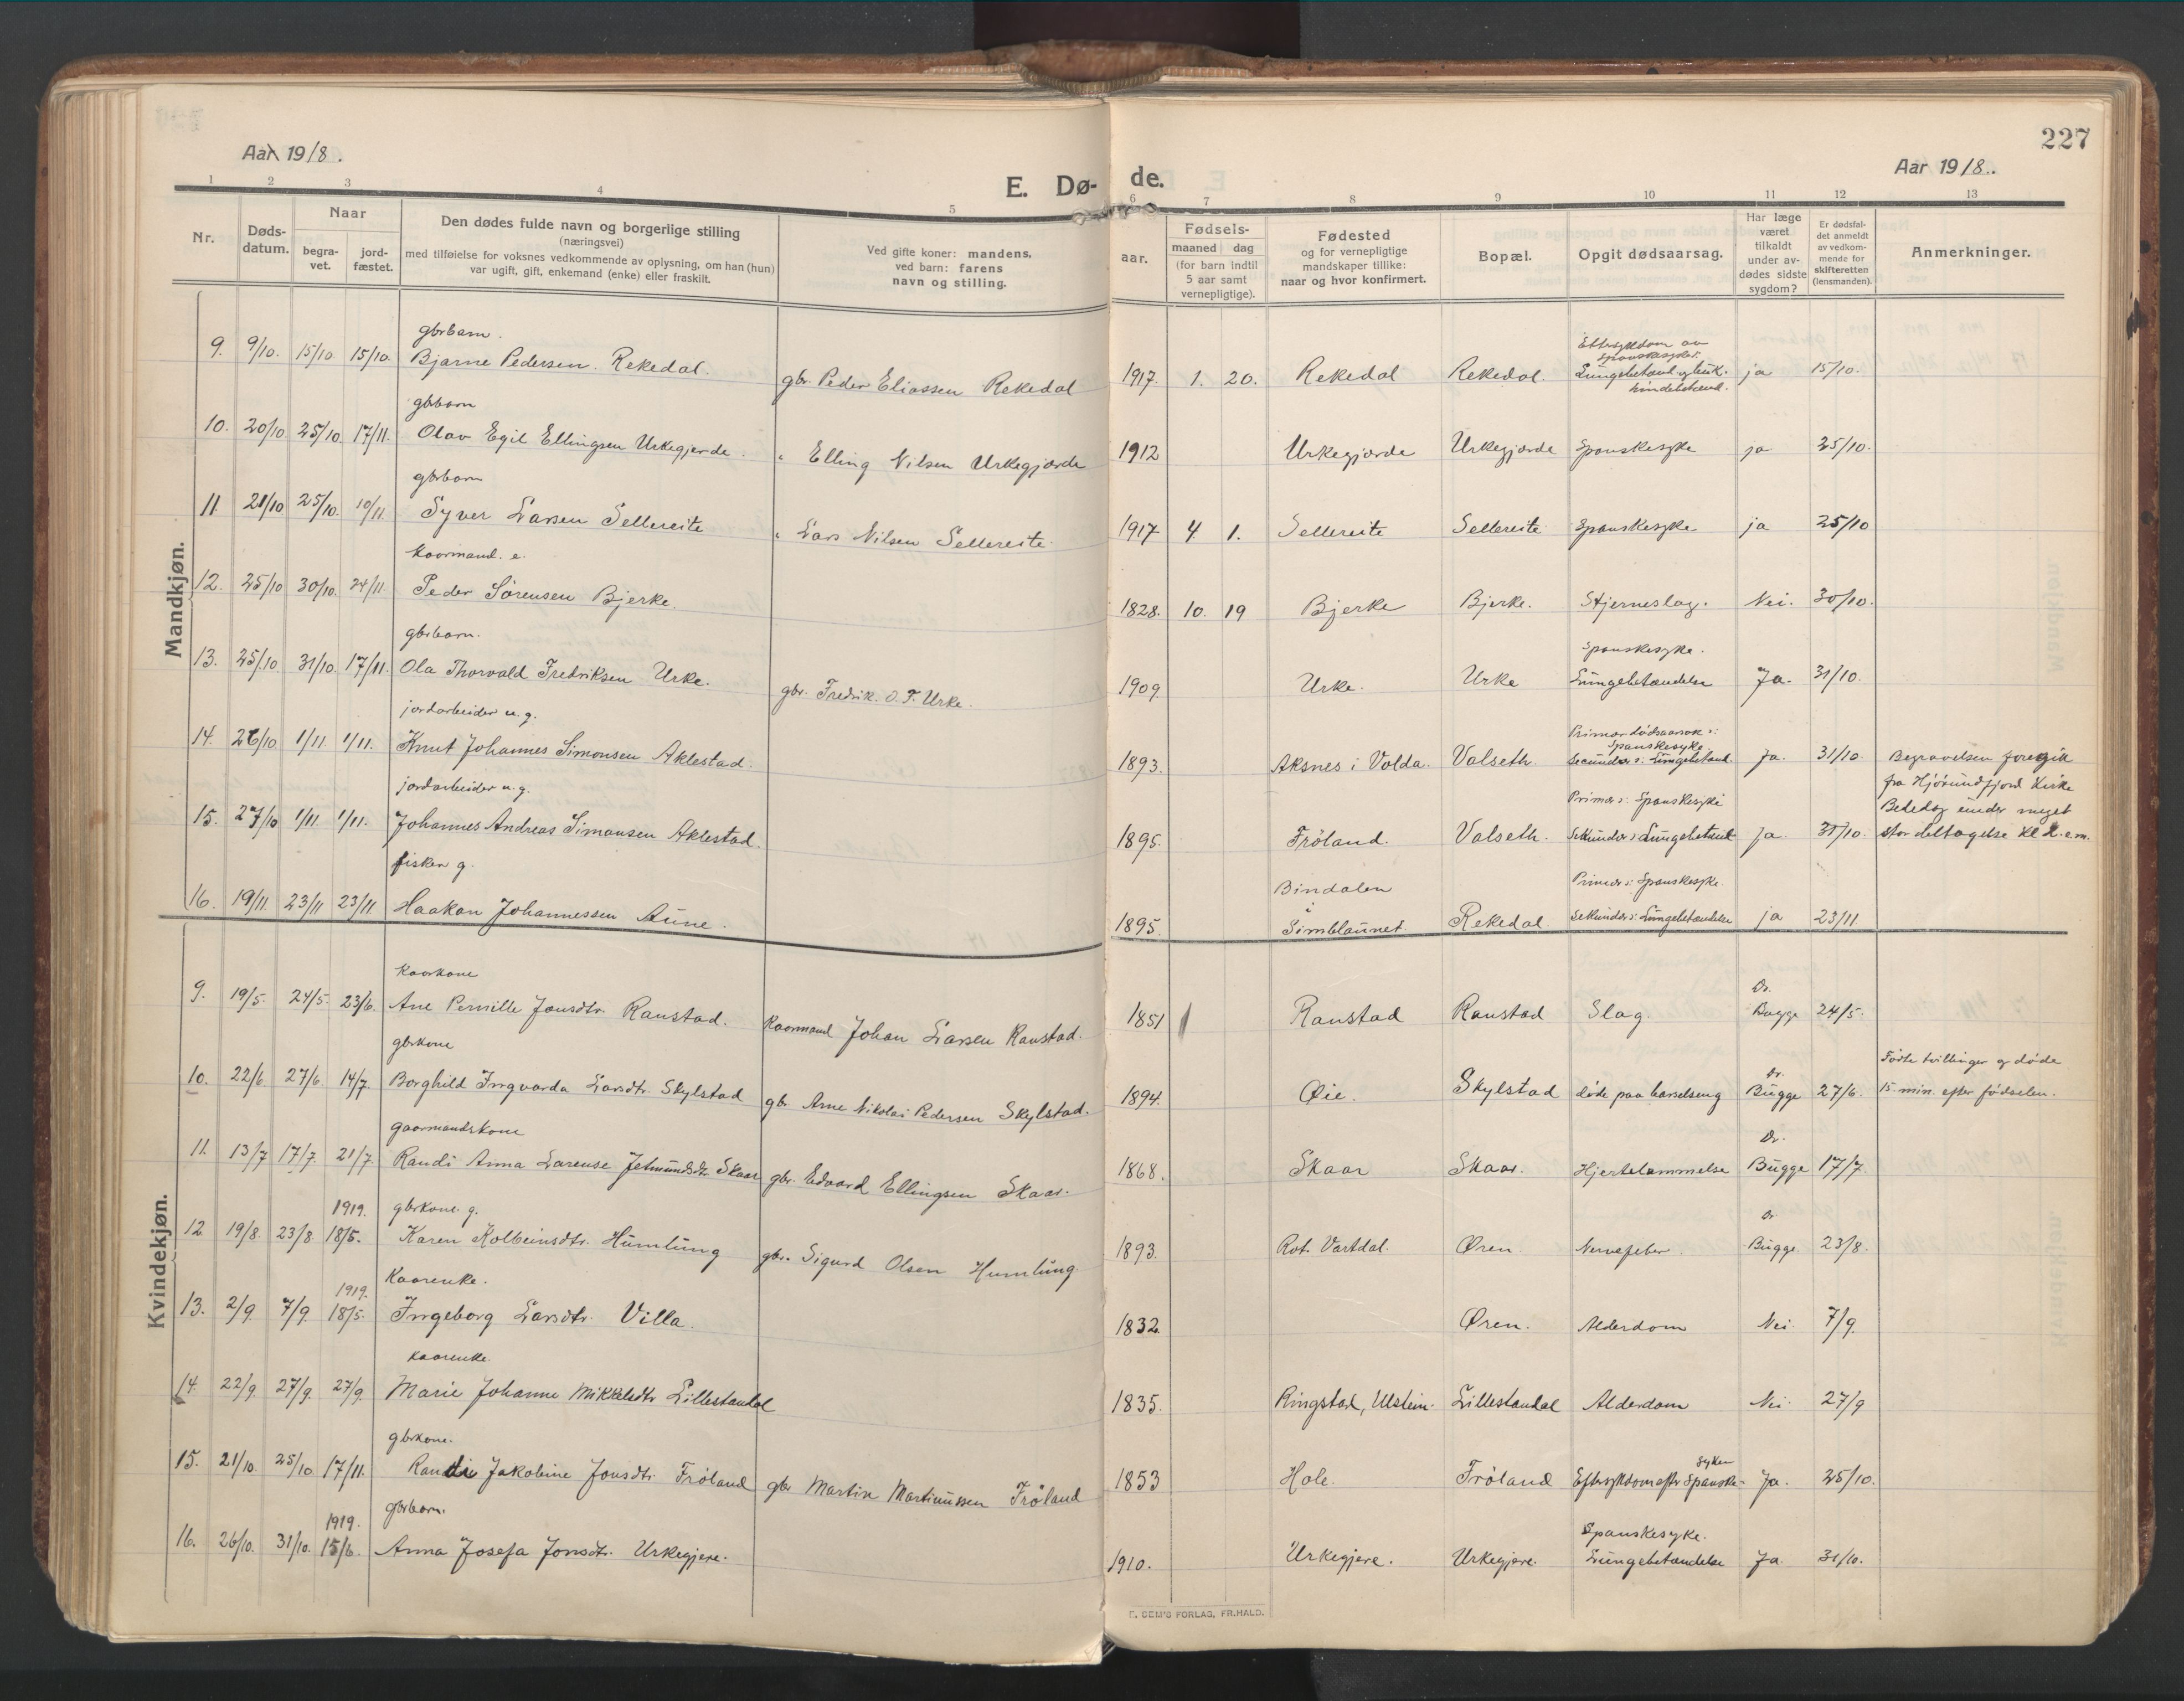 227
Aar 1918.
Aar 1918.
E. Dø- de.
1 2 3 4 5 6 7 8 9 10 11 12 13
Nr.
Døds-
datum.
Naar
begra-
vet.
jord-
fæstet.
Den dødes fulde navn og borgerlige stilling
(næringsvei)
med tilføielse for voksnes vedkommende av oplysning, om han (hun)
var ugift, gift, enkemand (enke) eller fraskilt.
Ved gifte koner: mandens.
ved barn: farens
navn og stilling.
aar.
Fødsels-
maaned dag
(for barn indtil
5 aar samt
vernepligtige).
Fødested
og for vernepligtige
mandskaper tillike:
naar og hvor konfirmert.
Bopæl.
Opgit dødsaarsag.
Har læge
været
tilkaldt
under av-
dødes sidste
sygdom?
Er dødsfal-
det anmeldt
av vedkom-
mende for
skifteretten
(lensmanden).
Anmerkninger.
Mandkjøn.
gbrbarn. Ettersykdom av
Spanskesyken.
9. 9/10. 15/10 15/10. Bjarne Pedersen Rekedal. gbr. Peder Eliassen Rekedal 1917. 1. 20. Rekedal Rekedal. Lungebetænd. og buk- ja 15/10.
hindebetænd.
gbrbarn
10. 20/10 25/10. 17/11. Olav Egil Ellingsen Urkegjerde. " Elling Nilsen Urkegjærde 1912 Urkegjærde Urkegjærde Spanskesyke ja 25/10.
gbrbarn
11 21/10 25/10. 10/11 Syver Larsen Sellereite " Lars Nilsen Sellereite. 1917 4 1. Sellereite Sellereite Spanskesyke ja 25/10
kaarmand. e.
12. 25/10 30/10. 24/11 Peder Sørensen Bjerke. 1828. 10. 19 Bjerke Bjerke. Hjerneslag. Nei. 30/10.
gbrbarn. Spanskesyke.
13. 25/10 31/10 17/11. Ola Thorvald Fredriksen Urke. gbr. Fredrik. O. F. Urke. 1909 Urke. Urke Lungebetændelse Ja. 31/10.
jordarbeider u. g. Primær dødsaarsak:
Spanskesyke
14. 26/10 1/11 1/11. Knut Johannes Simonsen Aklestad. 1893. Aksnes i Volda. Valseth secundær: Lungebetænd. Ja. 31/10. Begravelsen foregik
fra Hjørundfjord Kirke
jordarbeider u. g. Primær: Spanskesyke Bededag under meget
15. 27/10 1/11 1/11. Johannes Andreas Simonsen Aklestad. 1895. Frøland. Valseth. Sekundær: Lungebetænd ja. 31/10. stor deltagelse kl 2. e.m.
fisker g. Bindalen Primær: Spanskesyke
i
16. 19/11 23/11 23/11 Haakon Johannessen Aune. 1895. Simblaunet Rekedal Sekundær: Lungebetændelse ja 23/11
Kvindekjøn.
kaarkone Dr.
9. 19/5. 24/5. 23/6. Ane Pernille Jonsdtr. Ranstad. Kaarmand Johan Larsen Ranstad. 1851 Ranstad Ranstad Slag. Bugge 24/5.
gbrkone Dr. Fødte tvillinger og døde
10. 22/6. 27/6. 14/7. Borghild Ingvarda Larsdtr. Skylstad gbr. Arne Nikolai Pedersen Skylstad. 1894. Øie. Skylstad døde paa barselseng Bugge 27/6. 15 min. efter fødselen.
gaarmandskone Dr.
11. 13/7 17/7. 21/7. Randi Anna Larense Jetmundsdtr. Skaar gbr. Edvard Ellingsen Skaar. 1868. Skaar Skaar. Hjertelammelse Bugge 17/7
1919. gbrkone. g. Dr
12 19/8 23/8 18/5. Karen Kolbeinsdtr. Humlung gbr. Sigurd Olsen Humlung. 1893. Rot. Vartdal. Øren. Nervefeber. Bugge. 23/8.
1919. Kaarenke.
13. 2/9 7/9. 18/5. Ingeborg Larsdtr. Villa. 1832. Øren. Alderdom Nei. 7/9.
kaarenke.
14. 22/9. 27/9. 27/9. Marie Johanne Mikkelsdtr Lillestandal 1835. Ringstad, Ulstein. Lillestandal Alderdom Nei. 27/9
gbrkone. syken
15. 21/10. 25/10 17/11. Randi Jakobine Jonsdtr. Frøland gbr Martin Martinussen Frøland 1853 Hole. Frøland Eftersykdom efter Spanske- Ja. 25/10.
1919. gbrbarn. Spanskesyke.
16. 26/10. 31/10. 15/6. Anna Josefa Jonsdtr. Urkegjere. 1910. Urkegjere. Urkegjere. Lungebetændelse Ja 31/10.
E. SEM'S FORLAG, FR.HALD.